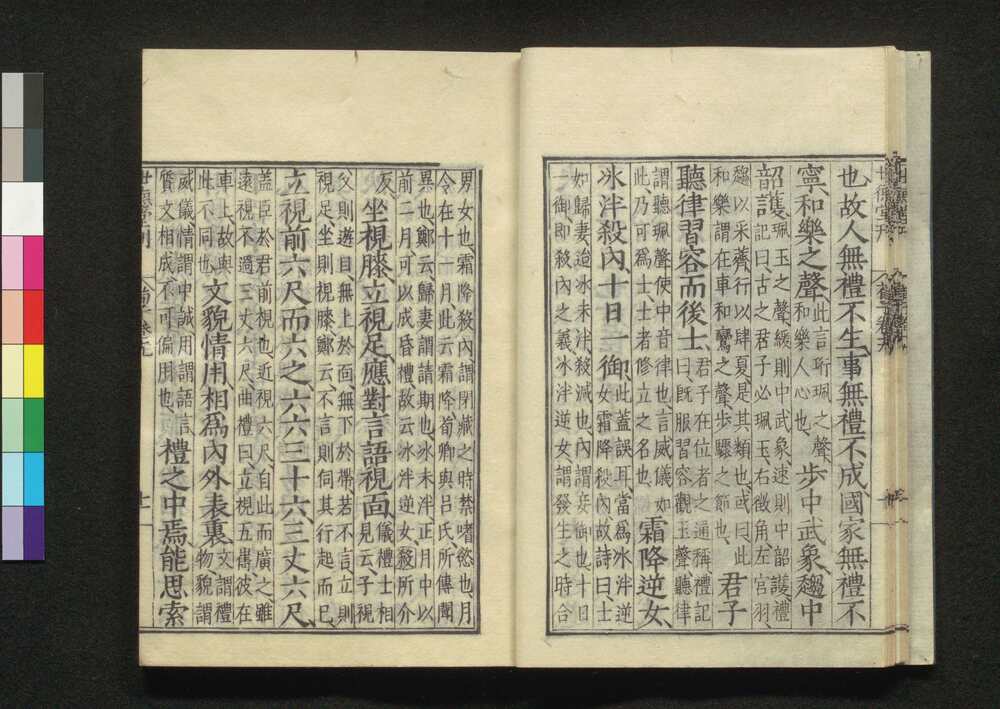 也故人無禮不生、事無禮不成、國家無禮不
寧、和樂之聲、此言珩珮之聲、
和樂人心也、
步中武象、趨中
韶護、珮玉之聲、緩則中武象、速則中韶護、禮
記曰、古之君子必珮玉、右徵角、左宮羽、
趨以采薺、行以肆夏、是其類也、或曰、此
和樂謂在車和鸞之聲、步驟之節也、
君子
聽律習容而後士、君子在位者之通稱、禮記
曰、既服習容觀玉聲、聽律
謂聽珮聲使中音律也、言威儀如
此乃可爲士、士者修立之名也、
霜降逆女、
冰泮殺內、十日一御、此蓋誤耳、當爲冰泮逆
女、霜降殺內、故詩曰、士
如歸妻、迨冰未泮、殺減也、內謂妾御也、十日
一御、即殺內之義、冰泮逆女、謂發生之時、合
男女也、霜降殺內、謂閉藏之時、禁嗜慾也、月
令在十一月、此云霜降、荀卿與呂氏所傳聞
異也、鄭云、歸妻謂請期也、冰未泮、正月中以
前、二月可以成昏禮、故云冰泮逆女、殺所介
反、坐視膝、立視足、應對言語視面、儀禮士相
見云、子視
父則遊目、無上於面、無下於帶、若不言、立則
視足、坐則視膝、鄭云、不言則伺其行起而已、
立視前六尺而六之、六六三十六、三丈六尺、
蓋臣於君前視也、近視六尺、自此而廣之、雖
遠視不過三丈六尺、曲禮曰、立視五巂、彼在
車上、故與
此不同也、
文貌情用、相爲內外表裏、文謂禮
物貌謂
威儀、情謂中誠、用謂語言、
質文相成、不可偏用也、
禮之中焉能思索